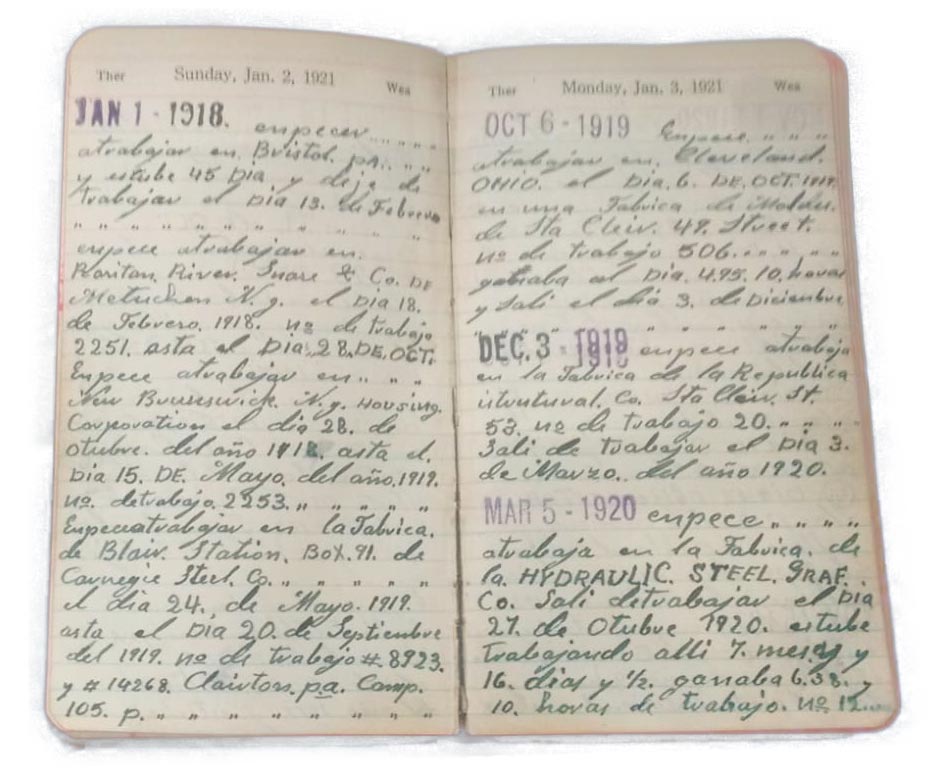 Ther Sunday, Jan. 2, 1921 Wea
JAN 1 - 1918. enpecer " " " "
atrabajar en. Bristol. pa. " "
y estube 45 Dia. y deje de
trabajar el Dia 13. de Febrero
" " " " " " " " " " "
enpece atrabajar en.
Raritan. River. Snare & Co. DE
Metuchen N. y. el Dia 18.
de Febrero. 1918. nº de trabajo
2251. asta el Dia 28. DE. OCT.
Enpece atrabajar en " " "
New Brunswick. N. y. Housing.
Corporation el dia 28. de
otubre. del año 1918. asta el.
Dia 15. DE. Mayo. del año. 1919.
nº. detrabajo. 2253. " " " " "
Enpeceatrabajar en la Fabrica.
de Blair. Station. Box. 91. de
Carnegie Steel. Co. " " " " "
el dia 24. de Mayo. 1919.
asta el Dia 20. de Septienbre
del 1919. nº de trabajo #. 8923.
y # 14268. Clairton. pa. Camp.
105. p. " " " " " " " "
Ther Monday, Jan. 3, 1921 Wea
OCT 6 - 1919 Enpece " " "
atrabajar en. Cleveland.
OHIO. el Dia. 6. DE. OCT. 1919.
en una Fabrica de Moldes.
de Sta Cleir. 49. Street.
nº de trabajo 506. " " " "
ganaba al Dia. 4.95. 10. horas
y Sali el dia 3. de Diciembre
" " " " " " " "
DEC. 3 - 1919 enpece atrabaja
en la Fabrica de la Republica
. Co. Sta Cleir. St.
53. nº de trabajo 20. " " "
Sali de trabajar el Dia 3.
de Marzo. del año 1920.
MAR 5 - 1920 enpece " " " "
atrabaja en la Fabrica. de
la. HYDRAULIC. STEEL. GRAF.
Co. Sali detrabajar el Dia
27. de Otubre 1920. estube
trabajando alli 7. meses y
16. dias y ½. ganaba 6.38. y
10. horas de trabajo. nº 12...